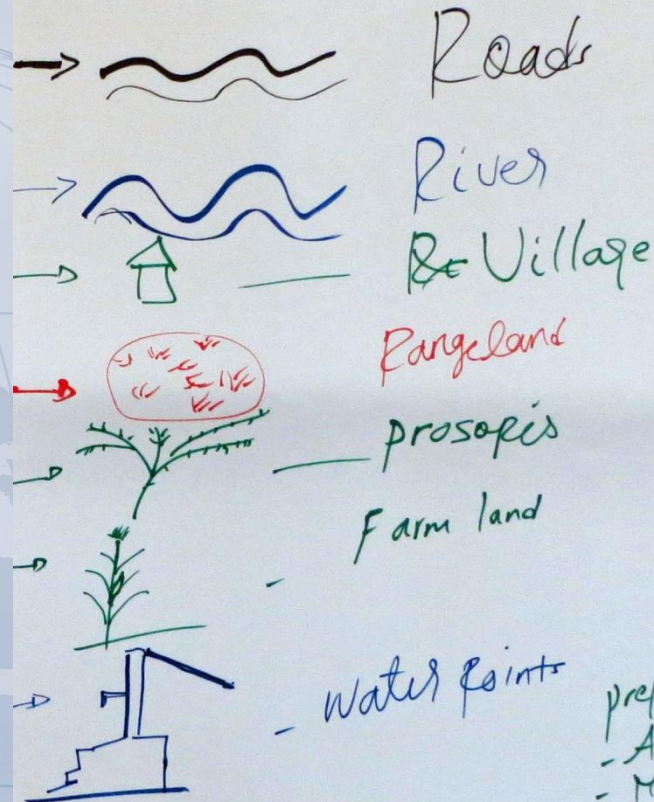 Roads
River
Village
Rangeland
prosopis
Farm land
- water points
pref
- A
- M